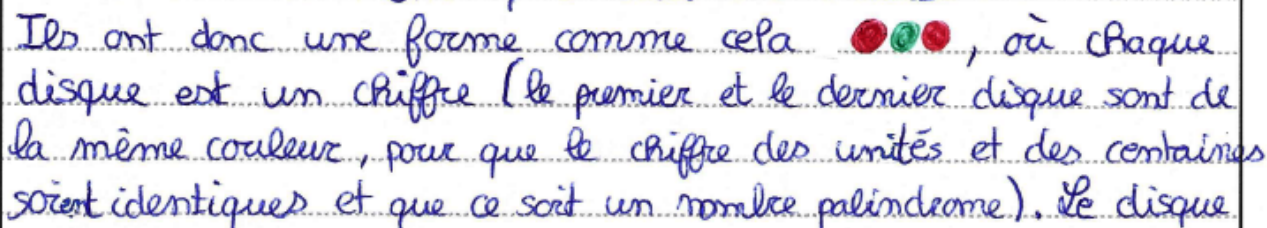 Ils ont donc une forme comme cela , où chaque
disque est un chiffre (le premier et le dernier disque sont de
la même couleur, pour que le chiffre des unités et des centaines
soient identiques et que ce soit un nombre palindrome). Le disque